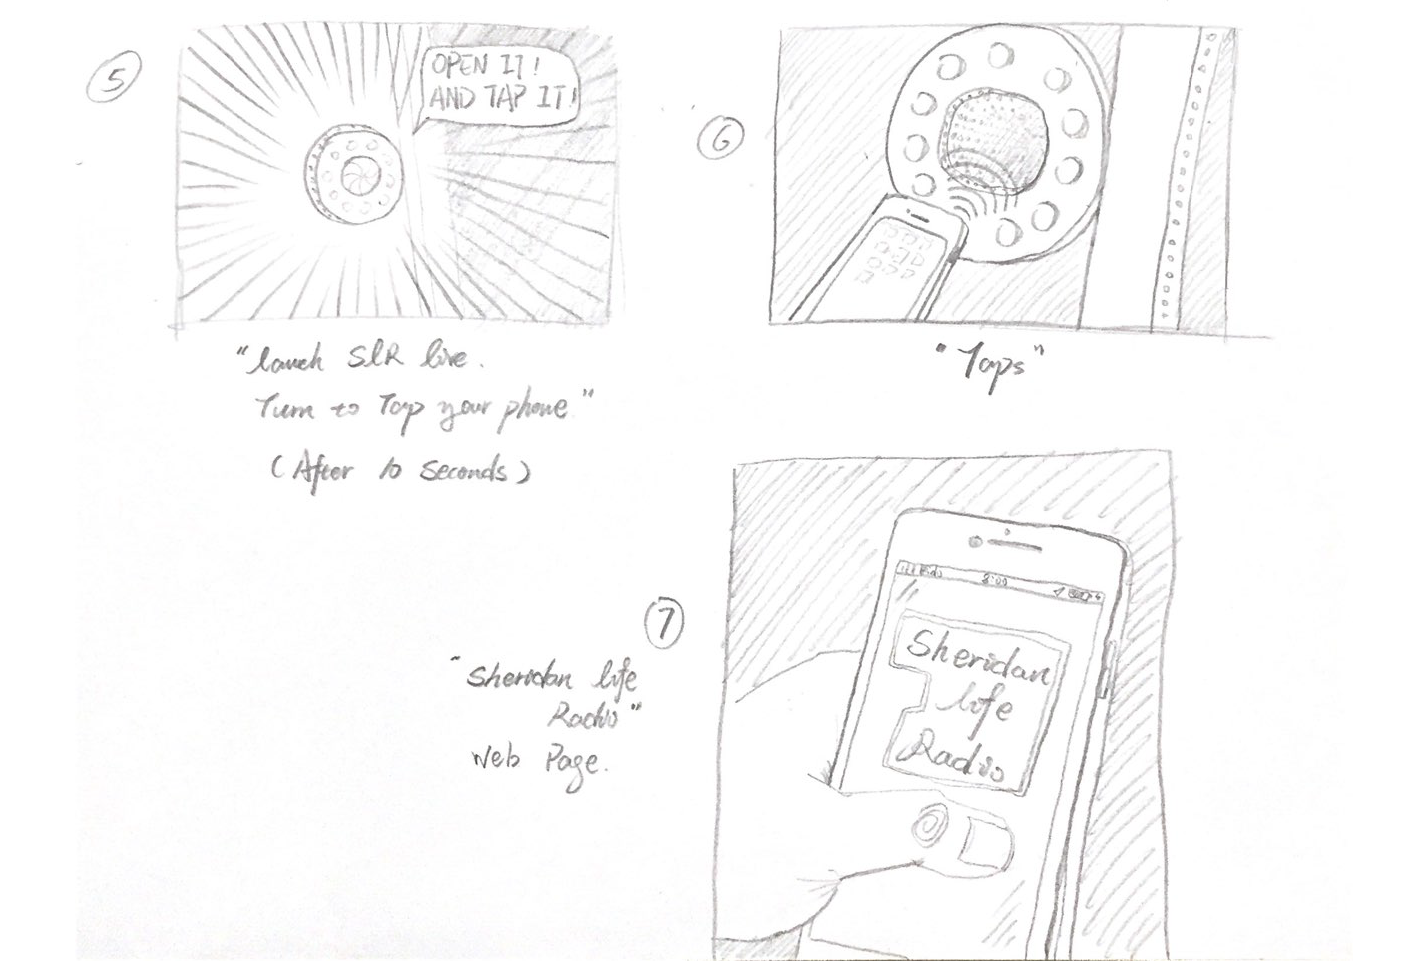 5
OPEN IT!
AND TAP IT!
"lauch SLR live.
Turn to Tap your phone."
(After 10 seconds)
6
"Taps"
7
"Sheridan life
Radio"
Web Page.
8:00
Sheridan
life
Radio